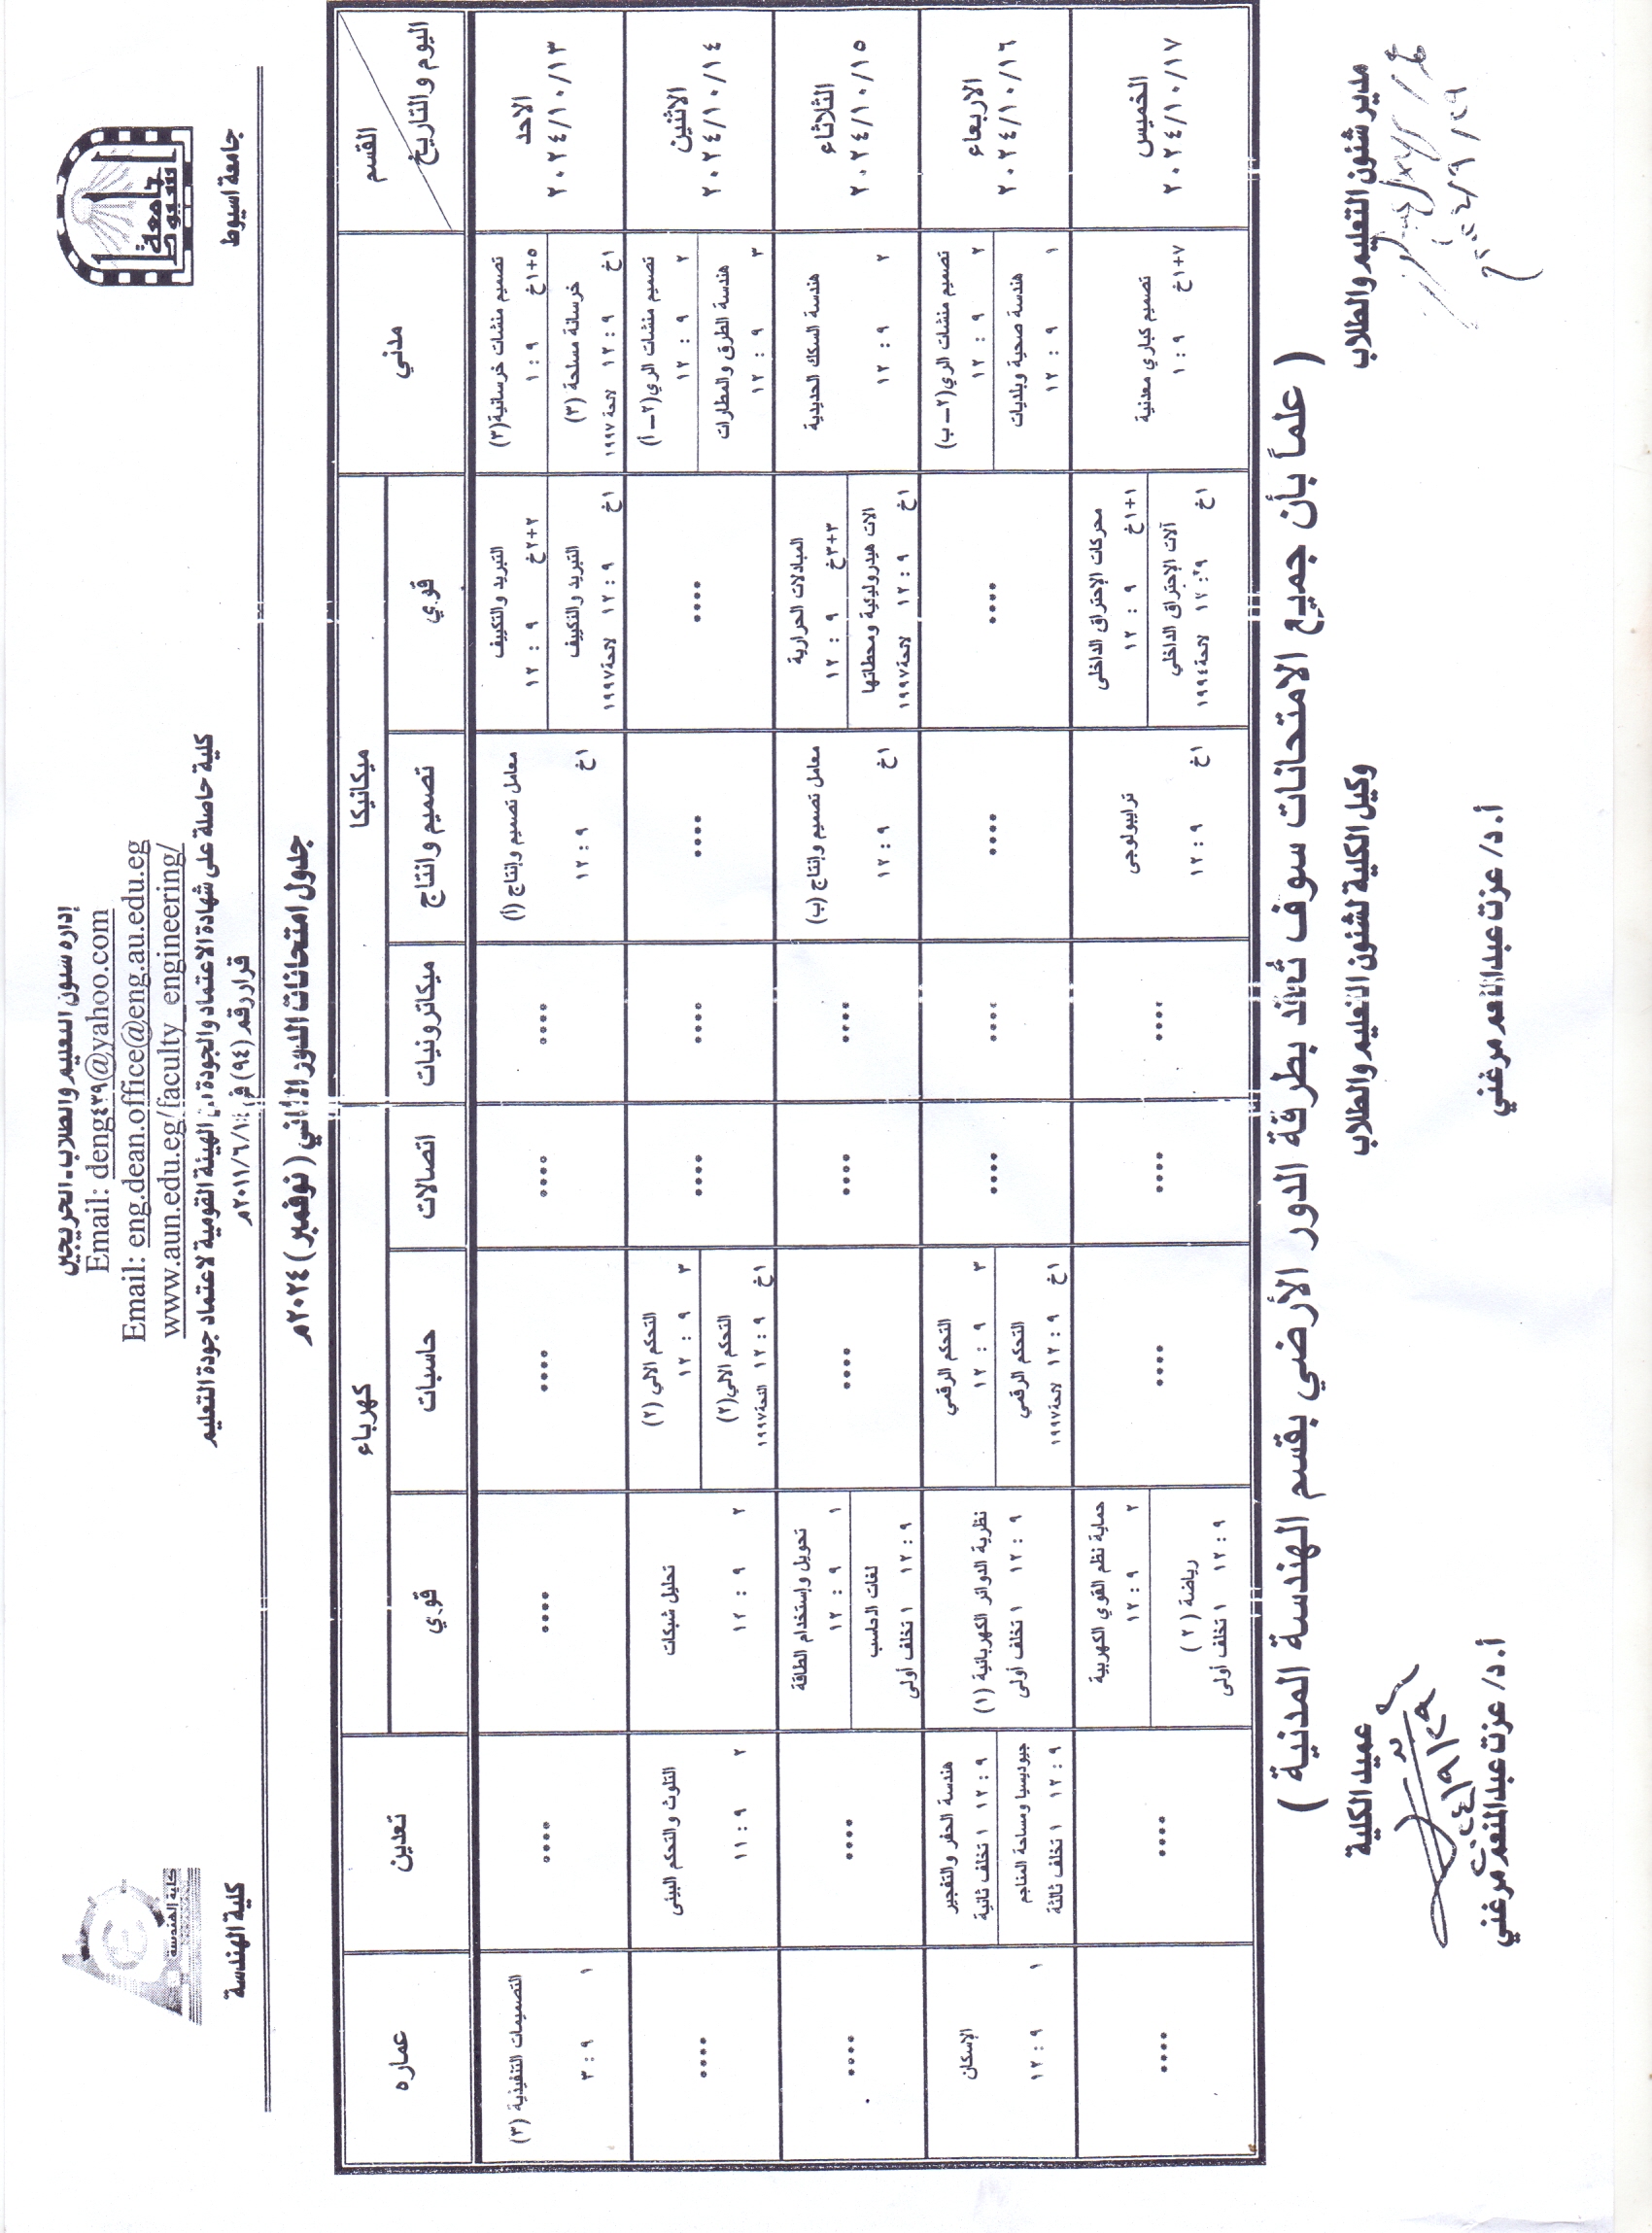 إدارة شئون التعليم والطلاب ـ الخريجين
Email: deng٤٣٩@yahoo.com
Email: eng.dean.office@eng.au.edu.eg
www.aun.edu.eg/faculty_engineering/
كلية حاصلة على شهادة الاعتماد والجودة من الهيئة القومية لاعتماد جودة التعليم
قرار رقم (٩٤) في ٢٠١١/٦/١٤م
جامعة أسيوط
جامعة اسيوط
كلية الهندسة
كلية الهندسة
جدول امتحانات الدور الثاني ( نوفمبر ) ٢٠٢٤م
القسم
اليوم والتاريخ
مدني
ميكانيكا
كهرباء
تعدين
عماره
قوي
تصميم وانتاج
ميكاترونيات
اتصالات
حاسبات
قوي
الاحد
٢٠٢٤/١٠/١٣
تصميم منشات خرسانية(٣)
٥+١خ ٩ : ١
خرسانة مسلحة (٣)
١خ ٩ : ١٢ لائحة ١٩٩٧
التبريد والتكييف
٢+٢خ ٩ : ١٢
التبريد والتكييف
١خ ٩ : ١٢ لائحة١٩٩٧
معامل تصميم وإنتاج (أ)
١خ ٩ : ١٢
....
....
....
....
....
التصميمات التنفيذية (٣)
١ ٩ : ٣
الاثنين
٢٠٢٤/١٠/١٤
تصميم منشات الري(٢ـ أ)
٢ ٩ : ١٢
هندسة الطرق والمطارات
٣ ٩ : ١٢
....
....
....
....
التحكم الالي (٢)
٣ ٩ : ١٢
التحكم الالي(٢)
١خ ٩ : ١٢ النحة١٩٩٧
تحليل شبكات
٢ ٩ : ١٢
التلوث والتحكم البيئى
٢ ٩ : ١١
....
الثلاثاء
٢٠٢٤/١٠/١٥
هندسة السكك الحديدية
٢ ٩ : ١٢
المبادلات الحرارية
٣+٣خ ٩ : ١٢
الات هيدروليكية ومحطاتها
١خ ٩ : ١٢ لائحة١٩٩٧
معامل تصميم وإنتاج (ب)
١خ ٩ : ١٢
....
....
....
تحويل وإستخدام الطاقة
١ ٩ : ١٢
لغات الحاسب
٩ : ١٢ ١ تخلف أولى
....
....
الاربعاء
٢٠٢٤/١٠/١٦
تصميم منشات الري(٢ـ ب)
٢ ٩ : ١٢
هندسة صحية وبلديات
١ ٩ : ١٢
....
....
....
....
التحكم الرقمي
٣ ٩ : ١٢
التحكم الرقمي
١خ ٩ : ١٢ لائحة١٩٩٧
نظرية الدوائر الكهربائية (١)
٩ : ١٢ ١ تخلف أولى
هندسة الحفر والتفجير
٩ : ١٢ ١ تخلف ثانية
جيوديسيا ومساحة المناجم
٩ : ١٢ ١ تخلف ثالثة
الإسكان
١ ٩ : ١٢
الخميس
٢٠٢٤/١٠/١٧
تصميم كباري معدنية
٧+١خ ٩ : ١
محركات الإحتراق الداخلى
١+١خ ٩ : ١٢
آلات الإحتراق الداخلي
١خ ٩ : ١٢ لائحة١٩٩٤
ترايبولوجى
١خ ٩ : ١٢
....
....
....
حماية نظم القوي الكهربية
٢ ٩ : ١٢
رياضة ( ٢ )
٩ : ١٢ ١ تخلف أولى
....
....
( علماً بأن جميع الامتحانات سوف تُعقد بطرقة الدور الأرضي بقسم الهندسة المدنية )
مدير شئون التعليم والطلاب
وكيل الكلية لشئون التعليم والطلاب
عميد الكلية
٢٠٢٤/٩/٢٩
٢٠٢٤/٩/٢٩
أ. د/ عزت عبدالمنعم مرغني
أ. د/ عزت عبدالمنعم مرغني